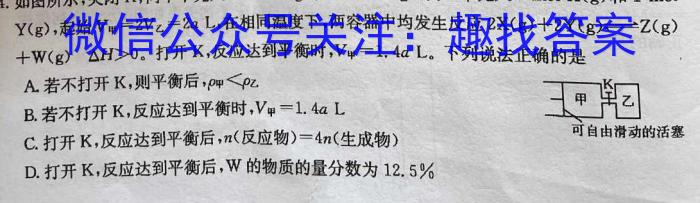 Y(g),起始V 2V 2a L,在相同温度下,两容器中均发生反应2X(g)+2Y(g) Z(g)
+W(g) ΔH>0。打开K,反应达到平衡时,V甲=1.4a L。下列说法正确的是
微信公众号关注:趣找答案
A.若不打开K,则平衡后,ρ甲<ρ乙
B.若不打开K,反应达到平衡时,V甲=1.4a L
C.打开K,反应达到平衡后,n(反应物)=4n(生成物)
D.打开K,反应达到平衡后,W的物质的量分数为12.5%
K
甲
乙
可自由滑动的活塞